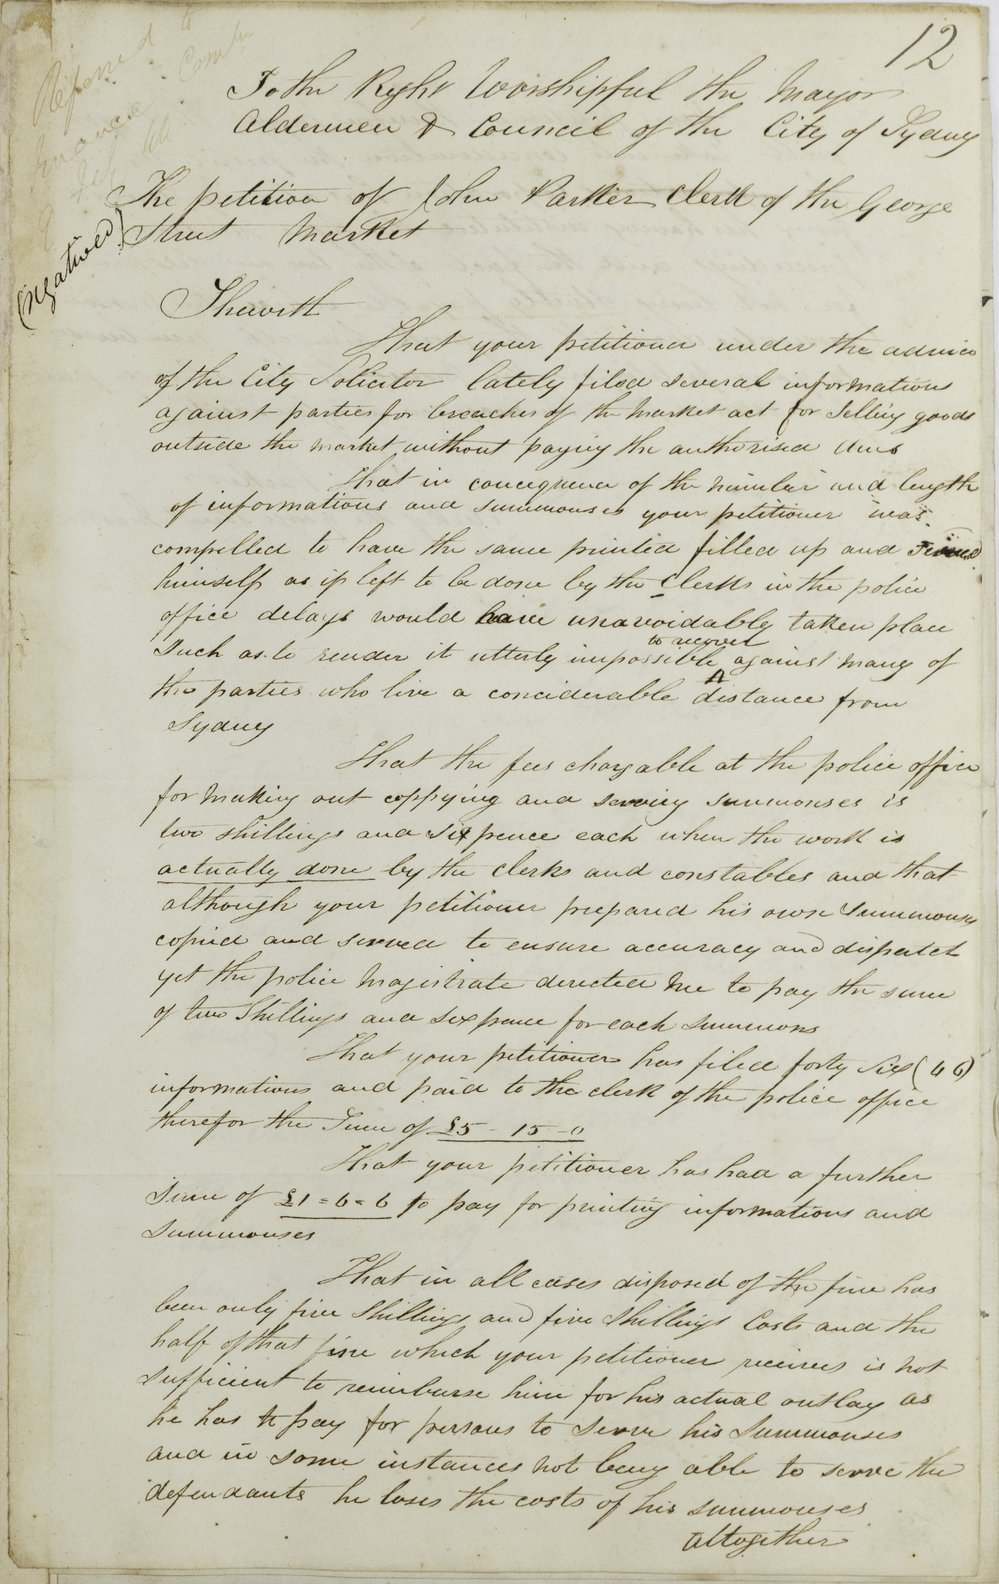 12
Refered to
Finance Comtee
(negatived)
To the Right Worshipful the Mayor
Aldermen & Council of the City of Sydney
The petition of John Parker Clerk of the George
Street Market
Sheweth
That your petitioner under the advice
of the City Solicitor lately filed several informations
against parties for breaches of the Market act for Selling goods
outside the market without paying the authorised dues
That in concequence of the number and length
of informations and summonses your petitioner was
compelled to have the same printed filled up and
himself as if left to be done by the Clerks in the police
office delays would have unavoidably taken place
Such as to render it utterly impossible to recover against many of
the parties who live a conciderable distance from
Sydney
That the fees chargable at the police office
for making out coppying and serving summonses is
two shillings and sixpence each when the work is
actually done by the clerks and constables and that
although your petitioner prepared his own Summonses
copied and served to ensure accuracy and dispatch
yet the police Magistrate directed me to pay the sum
of two Shillings and sixpence for each summons
That your petitioner has filed forty six (46)
informations and paid to the clerk of the police office
therefor the Sum of £5 - 15 - 0
That your petitioner has had a further
Sum of £1 = 6 = 6 to pay for printing informations and
Summonses
That in all cases disposed of the fine has
been only five Shillings and five Shillings Costs and the
half of that fine which your petitioner receives is not
sufficient to reimburse him for his actual outlay as
he has to pay for persons to serve his Summonses
and in some instances not being able to serve the
defendants he loses the costs of his summonses
altogether